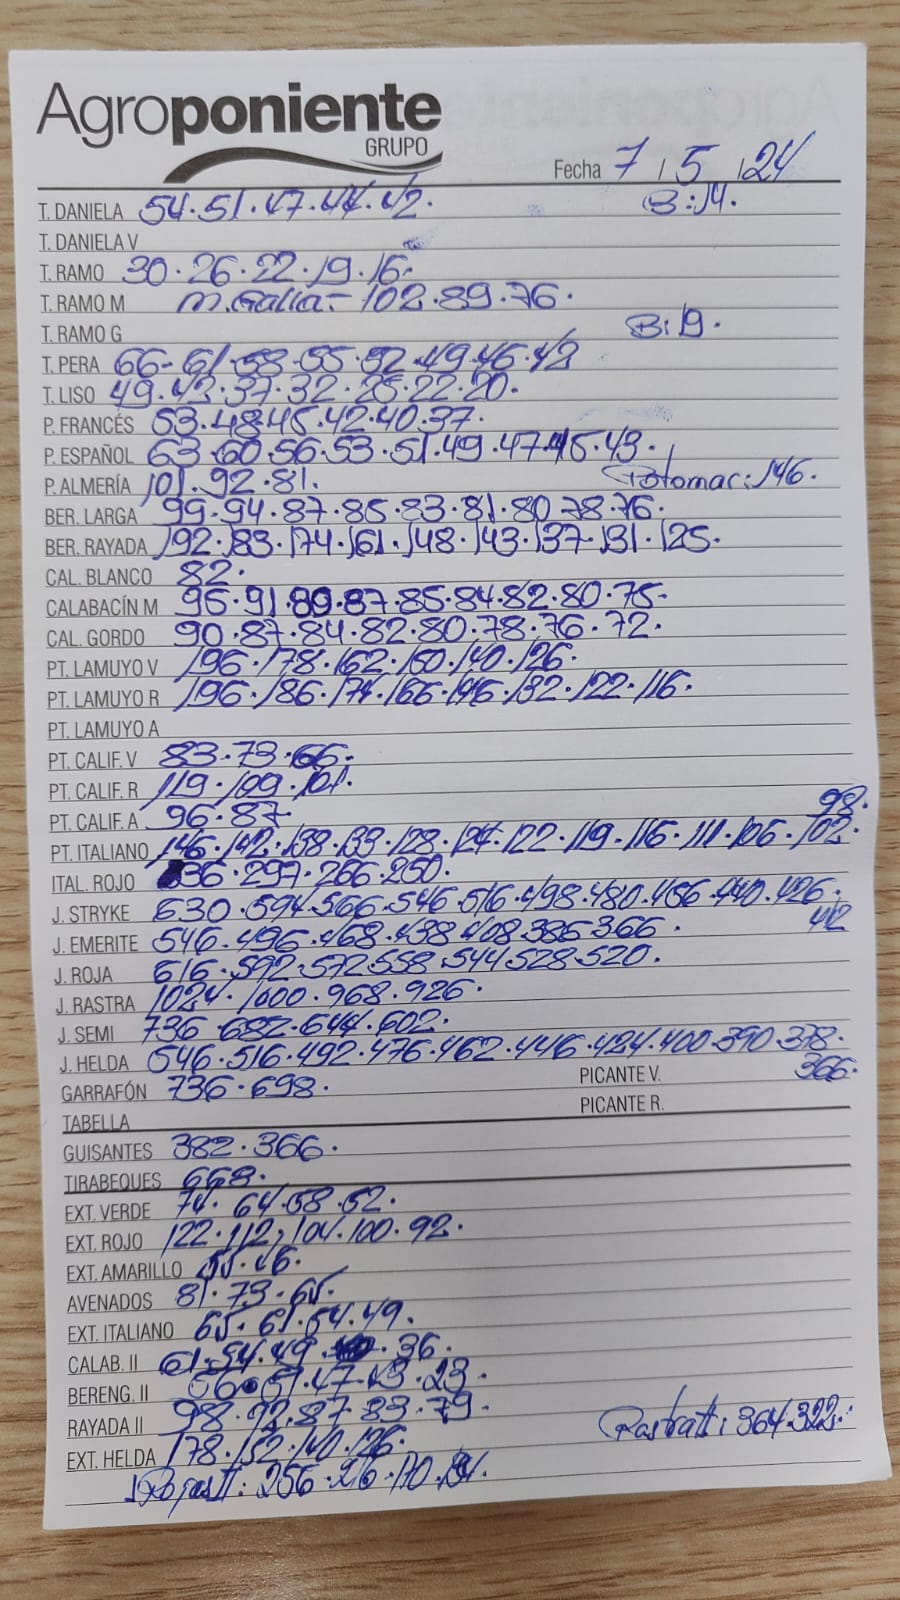 Agroponiente
GRUPO
Fecha 7 / 5 / 24
T. DANIELA 54.51.47.44.42. B:14.
T. DANIELA V
T. RAMO 30.26.22.19.16.
T. RAMO M M.Galia- 102.89.76.
T. RAMO G B:19.
T. PERA 66-61.58.55.52.49.46.42
T. LISO 49.42.37.32.25.22.20.
P. FRANCÉS 53.48.45.42.40.37.
P. ESPAÑOL 63.60.56.53.51.49.47.45.43.
P. ALMERÍA 101.92.81. Potomac:146.
BER. LARGA 99.94.87.85.83.81.80.78.76.
BER. RAYADA 192.183.174.161.148.143.137.131.125.
CAL. BLANCO 82.
CALABACÍN M 95.91.89.87.85.84.82.80.75.
CAL. GORDO 90.87.84.82.80.78.76.72.
PT. LAMUYO V 196.178.162.150.140.126.
PT. LAMUYO R 196.186.174.166.146.132.122.116.
PT. LAMUYO A
PT. CALIF. V 83.73.66.
PT. CALIF. R 119.109.101.
PT. CALIF. A 96.87 98.
PT. ITALIANO 146.142.138.133.128.124.122.119.116.111.106.102.
ITAL. ROJO 297.266.250.
J. STRYKE 630.594.566.546.516.498.480.456.440.426.
J. EMERITE 546.496.468.438.408.386.366. 412
J. ROJA 616.592.572.558.544.528.520.
J. RASTRA 1024.1000.968.926.
J. SEMI 736.682.644.602.
J. HELDA 546.516.492.476.462.446.424.400.390.378.
GARRAFÓN 736.698. PICANTE V. 366.
TABELLA PICANTE R.
GUISANTES 382.366.
TIRABEQUES 668.
EXT. VERDE 74.64.58.52.
EXT. ROJO 122.112.104.100.92.
EXT. AMARILLO 55.46.
AVENADOS 81.73.65.
EXT. ITALIANO 65.61.54.49.
CALAB. II 61.54.49. .36.
BERENG. II 56.51.47.43.23.
RAYADA II 98.92.87.83.79.
EXT. HELDA 178.152.140.126. RastraII:364.322.
256